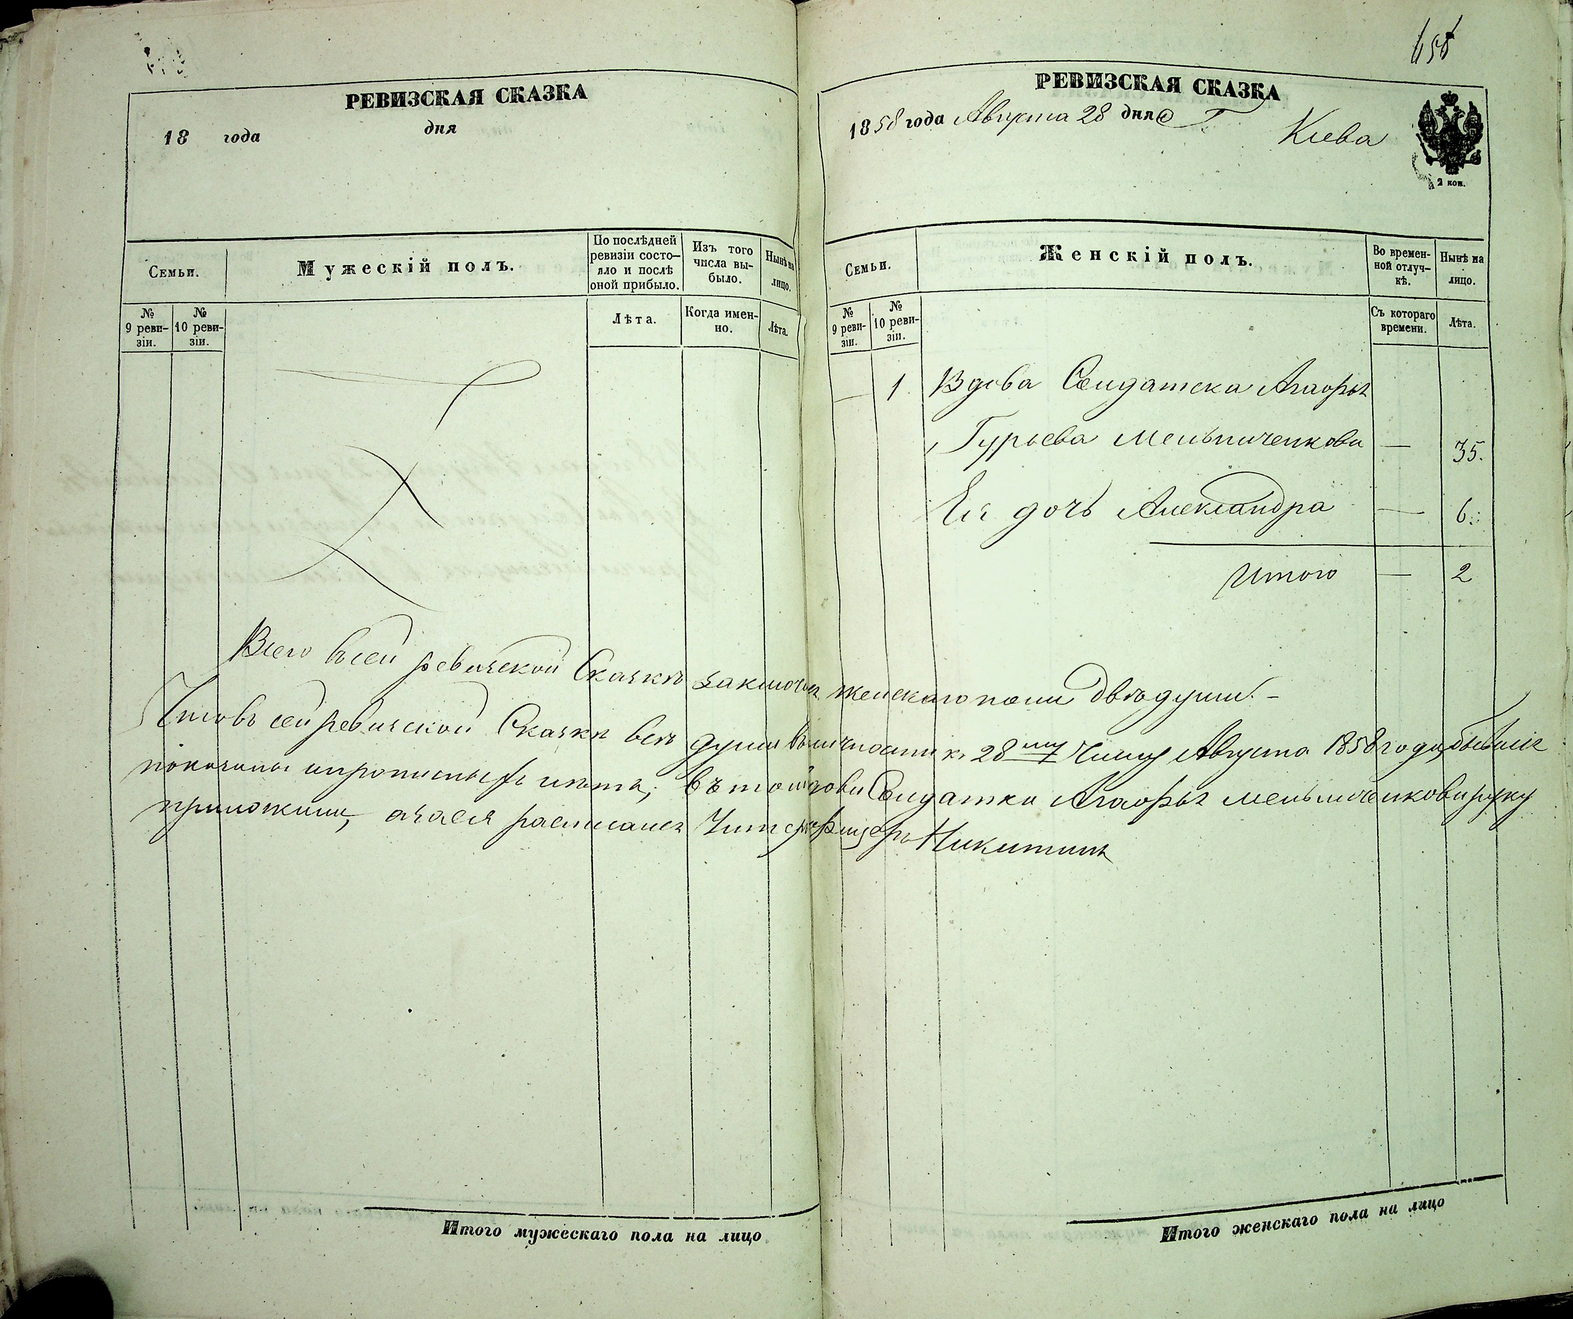 РЕВИЗСКАЯ СКАЗКА
18 года дня
Семьи.
Мужескій полъ.
По послѣдней ревизіи состо-
яло и послѣ оной прибыло.
Изъ того числа вы-
было.
Нынѣ на лицо.
№ 9 реви-
зіи.
№ 10 реви-
зіи.
Лѣта.
Когда имен-
но.
Лѣта.
Итого мужескаго пола на лицо
658
РЕВИЗСКАЯ СКАЗКА
1858 года Августа 28 дня Г Кіева
2 коп.
Семьи.
Женскій полъ.
Во времен-
ной отлуч-
кѣ.
Нынѣ на лицо.
№ 9 реви-
зіи.
№ 10 реви-
зіи.
Съ котораго времени.
Лѣта.
— 1 Вдова Солдатска Агафья
Гурьева Мельниченкова — 35.
Ея дочь Александра — 6.
Итого — 2
Всего въ сей ревизской Сказкѣ заключ женскаго пола двѣ души.
Что въ сей ревизской Сказкѣ всѣ души въ личности к 28му числу Августа 1858 года бывшіе
показаны и прописаны лѣта; въ томъ вдовы Солдатки Агафьи Мельниченковы руку
приложили, а за ея росписался Унтерофицеръ Никитинъ
Итого женскаго пола на лицо